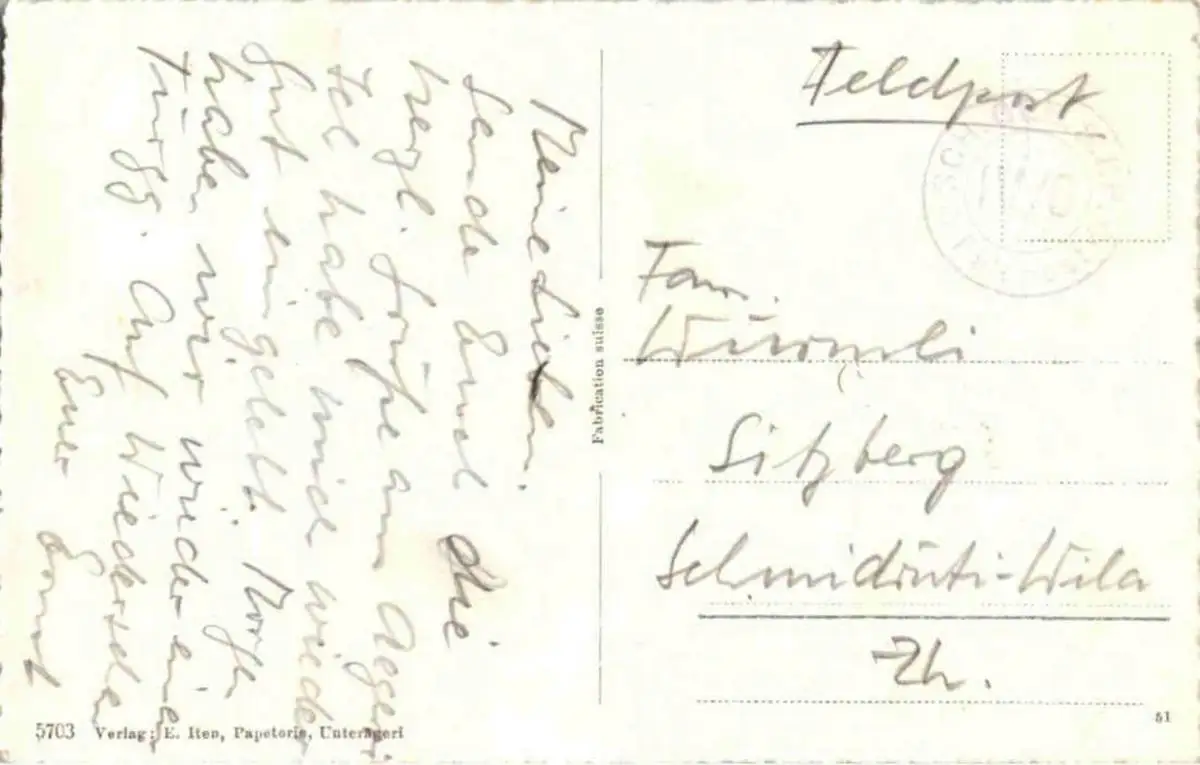 Meine Lieben.
Sende Euch die
herzl. Grüße am Aegeri
Ich habe mich wieder
Gut eingelebt. Morgen
haben wir wieder eine
Auf Wiedersehen
Euer Ernst
Fabrication suisse
5703 Verlag: E. Iten, Papeterie, Unterägeri
Feldpost
Fam.
Würmli
Sitzberg
Schmidrüti-Wila
Zh.
51